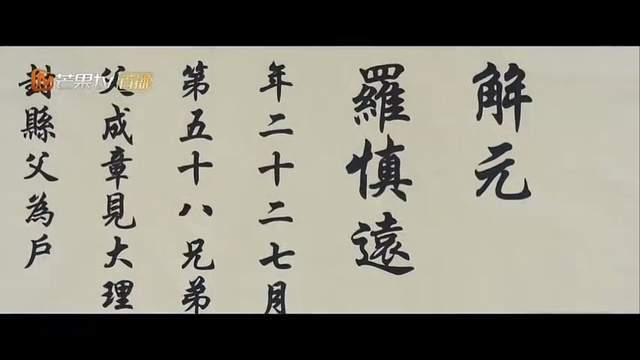 解元
羅慎遠
年二十二七月
第五十八兄弟
父成章見大理
封縣父為戶
芒果TV